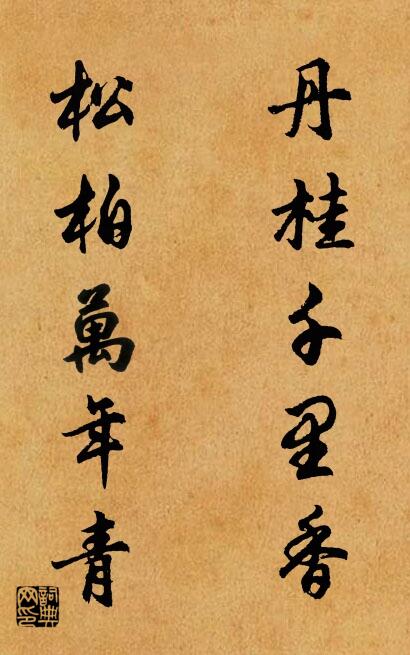 丹桂千里香
松柏萬年青
詞典網印